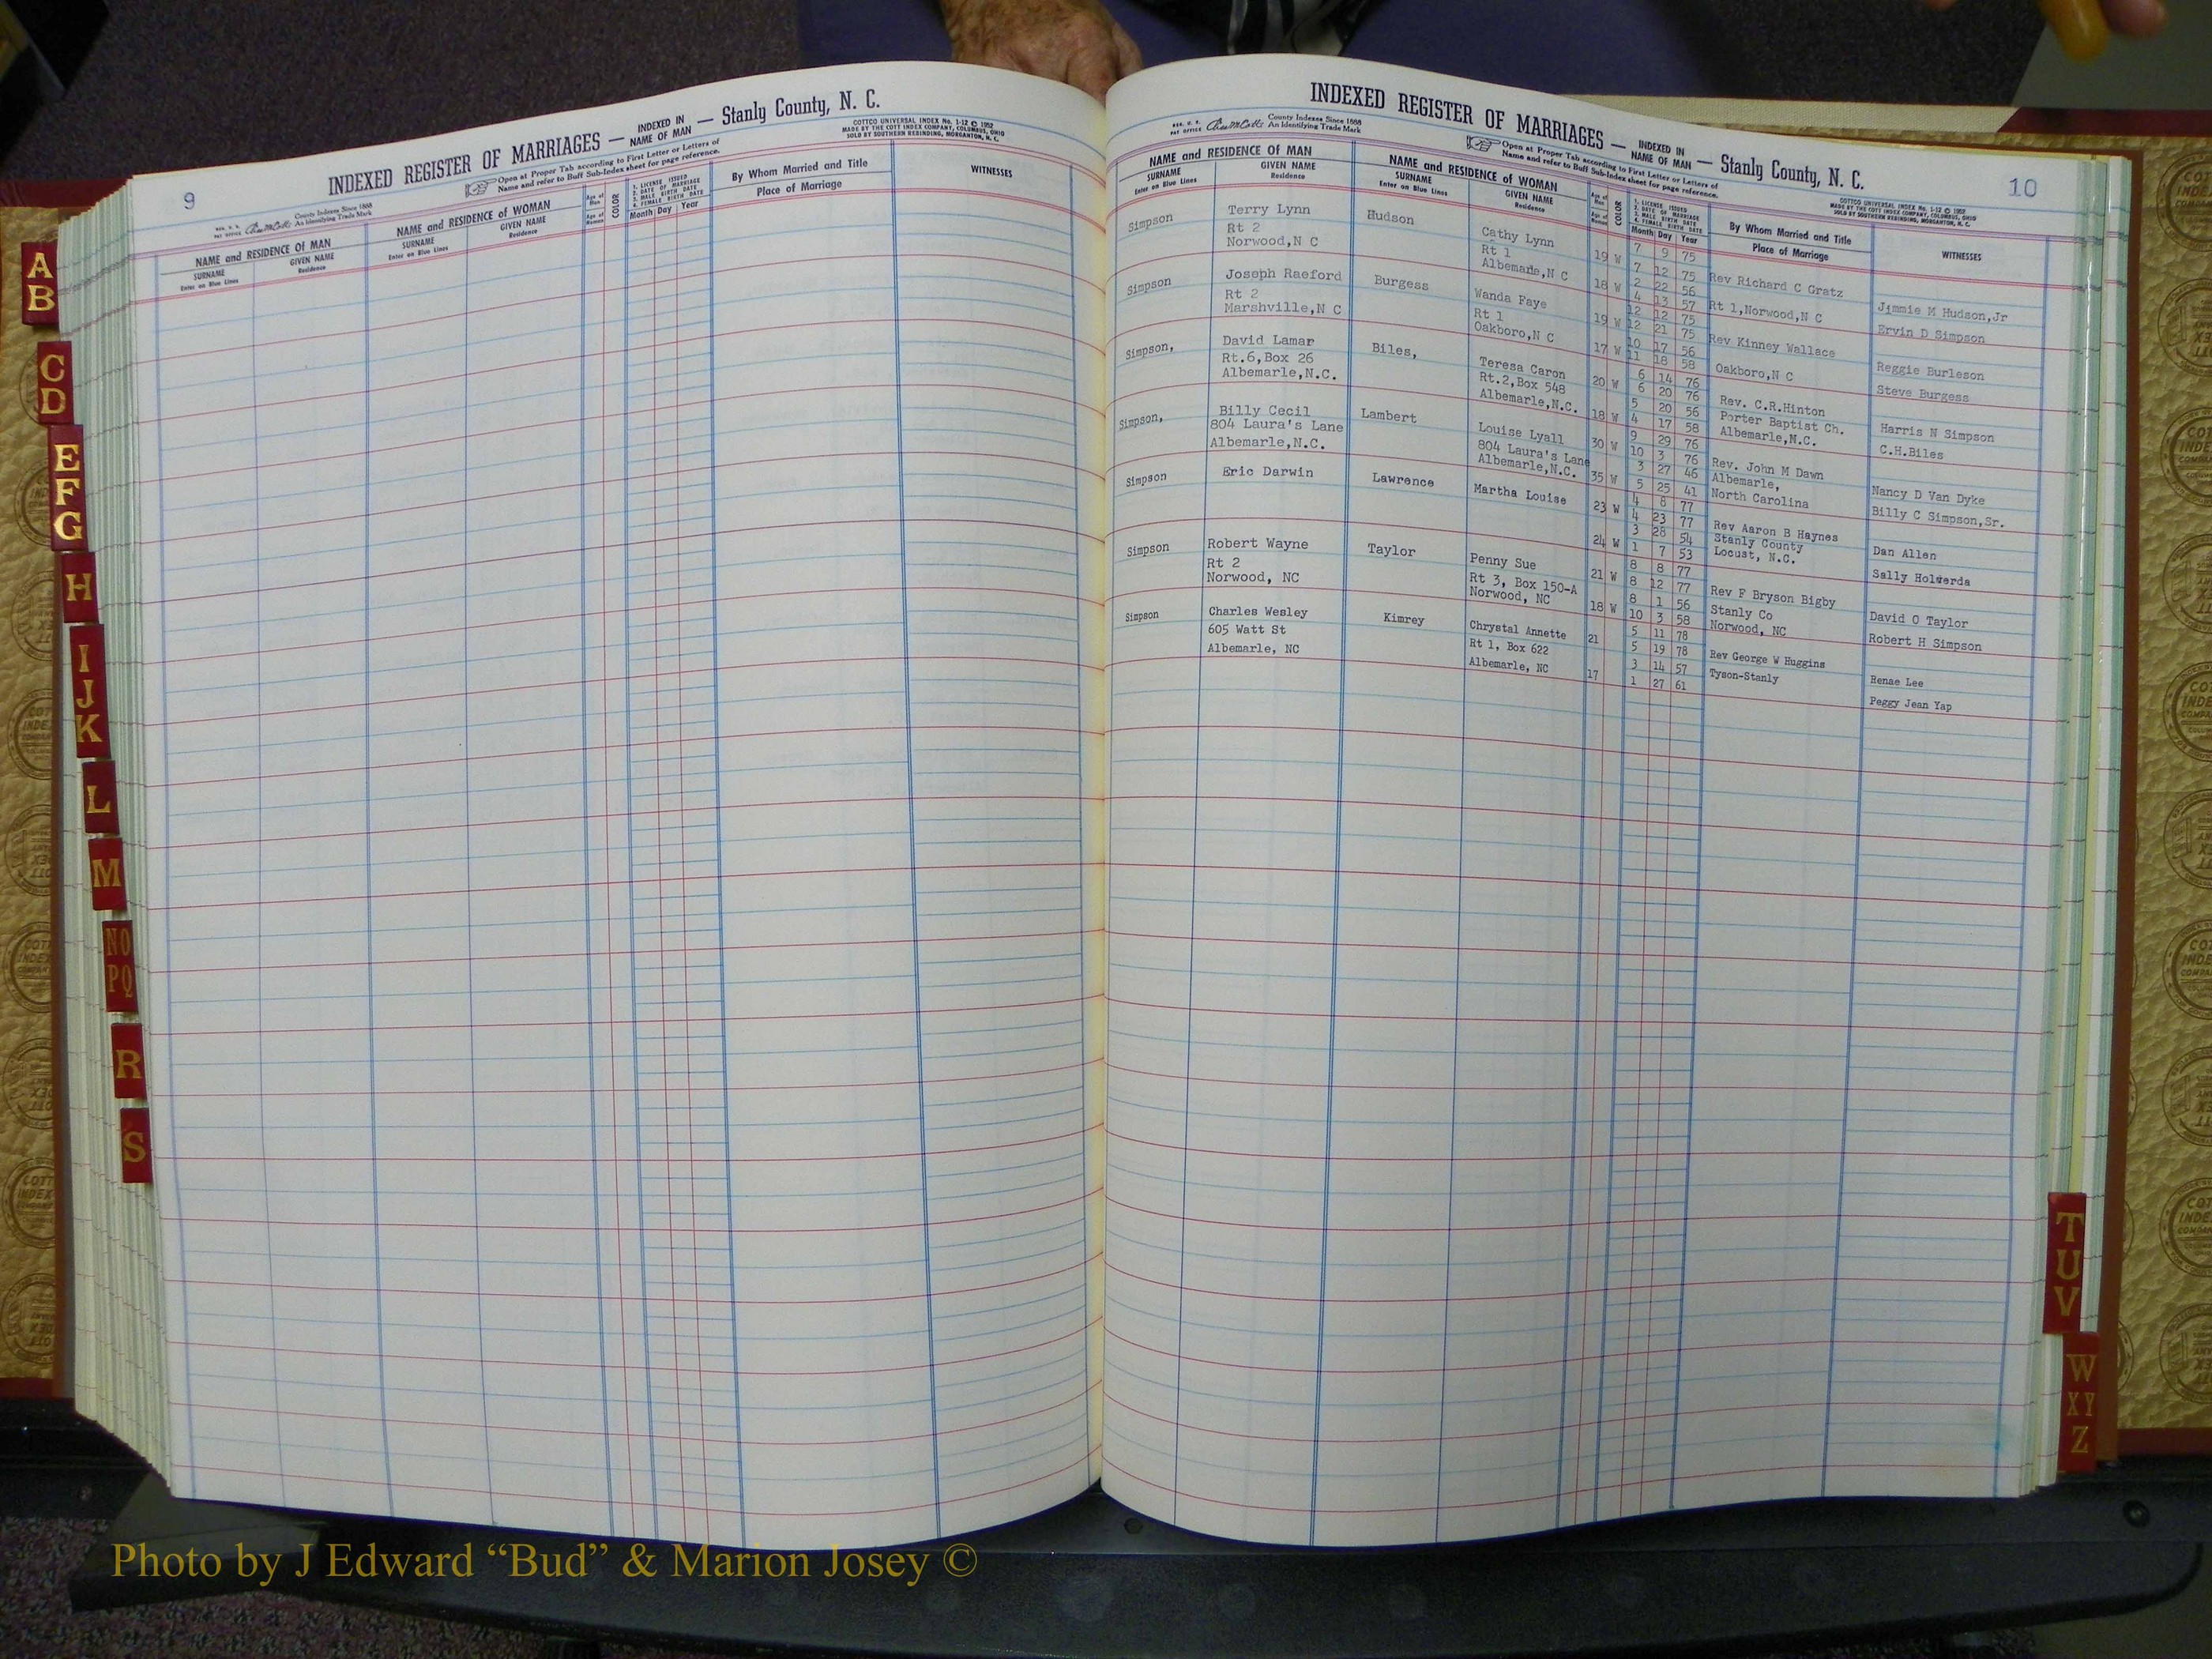 9
INDEXED REGISTER OF MARRIAGES — INDEXED IN NAME OF MAN — Stanly County, N. C.
REG. U. S. PAT OFFICE County Indexes Since 1888 An Identifying Trade Mark
Open at Proper Tab according to First Letter or Letters of Name and refer to Buff Sub-Index sheet for page reference.
COTTCO UNIVERSAL INDEX No. 1-12 © 1952
MADE BY THE COTT INDEX COMPANY, COLUMBUS, OHIO
SOLD BY SOUTHERN REBINDING, MORGANTON, N. C.
NAME and RESIDENCE OF MAN
SURNAME Enter on Blue Lines
GIVEN NAME Residence
NAME and RESIDENCE OF WOMAN
SURNAME Enter on Blue Lines
GIVEN NAME Residence
Age of Man
Age of Woman
COLOR
1. LICENSE ISSUED
2. DATE OF MARRIAGE
3. MALE BIRTH DATE
4. FEMALE BIRTH DATE
Month Day Year
By Whom Married and Title
Place of Marriage
WITNESSES
A
B
C
D
E
F
G
H
I
J
K
L
M
NO
PQ
R
S
10
INDEXED REGISTER OF MARRIAGES — INDEXED IN NAME OF MAN — Stanly County, N. C.
REG. U. S. PAT OFFICE County Indexes Since 1888 An Identifying Trade Mark
Open at Proper Tab according to First Letter or Letters of Name and refer to Buff Sub-Index sheet for page reference.
COTTCO UNIVERSAL INDEX No. 1-12 © 1952
MADE BY THE COTT INDEX COMPANY, COLUMBUS, OHIO
SOLD BY SOUTHERN REBINDING, MORGANTON, N. C.
NAME and RESIDENCE OF MAN
SURNAME Enter on Blue Lines
GIVEN NAME Residence
NAME and RESIDENCE OF WOMAN
SURNAME Enter on Blue Lines
GIVEN NAME Residence
Age of Man
Age of Woman
COLOR
1. LICENSE ISSUED
2. DATE OF MARRIAGE
3. MALE BIRTH DATE
4. FEMALE BIRTH DATE
Month Day Year
By Whom Married and Title
Place of Marriage
WITNESSES
Simpson Terry Lynn Hudson Cathy Lynn 19 W 7 9 75 Rev Richard C Gratz Jimmie M Hudson,Jr
Rt 2 Rt 1 7 12 75
Norwood,N C Albemarle,N C 18 W 2 22 56 Rt 1,Norwood,N C Ervin D Simpson
4 13 57
Simpson Joseph Raeford Burgess Wanda Faye 19 W 12 12 75 Rev Kinney Wallace Reggie Burleson
Rt 2 Rt 1 12 21 75
Marshville,N C Oakboro,N C 17 W 10 17 56 Oakboro,N C Steve Burgess
11 18 58
Simpson, David Lamar Biles, Teresa Caron 20 W 6 14 76 Rev. C.R.Hinton Harris N Simpson
Rt.6,Box 26 Rt.2,Box 548 6 20 76 Porter Baptist Ch.
Albemarle,N.C. Albemarle,N.C. 18 W 5 20 56 Albemarle,N.C. C.H.Biles
4 17 58
Simpson, Billy Cecil Lambert Louise Lyall 30 W 9 29 76 Rev. John M Dawn Nancy D Van Dyke
804 Laura's Lane 804 Laura's Lane 10 3 76 Albemarle,
Albemarle,N.C. Albemarle,N.C. 35 W 3 27 46 North Carolina Billy C Simpson,Sr.
5 25 41
Simpson Eric Darwin Lawrence Martha Louise 23 W 4 8 77 Rev Aaron B Haynes Dan Allen
4 23 77 Stanly County
24 W 3 28 54 Locust, N.C. Sally Holwerda
1 7 53
Simpson Robert Wayne Taylor Penny Sue 21 W 8 8 77 Rev F Bryson Bigby David O Taylor
Rt 2 Rt 3, Box 150-A 8 12 77 Stanly Co
Norwood, NC Norwood, NC 18 W 8 1 56 Norwood, NC Robert H Simpson
10 3 58
Simpson Charles Wesley Kimrey Chrystal Annette 21 5 11 78 Rev George W Huggins Renae Lee
605 Watt St Rt 1, Box 622 5 19 78 Tyson-Stanly
Albemarle, NC Albemarle, NC 17 3 14 57 Peggy Jean Yap
1 27 61
T
U
V
W
XY
Z
Photo by J Edward “Bud” & Marion Josey ©